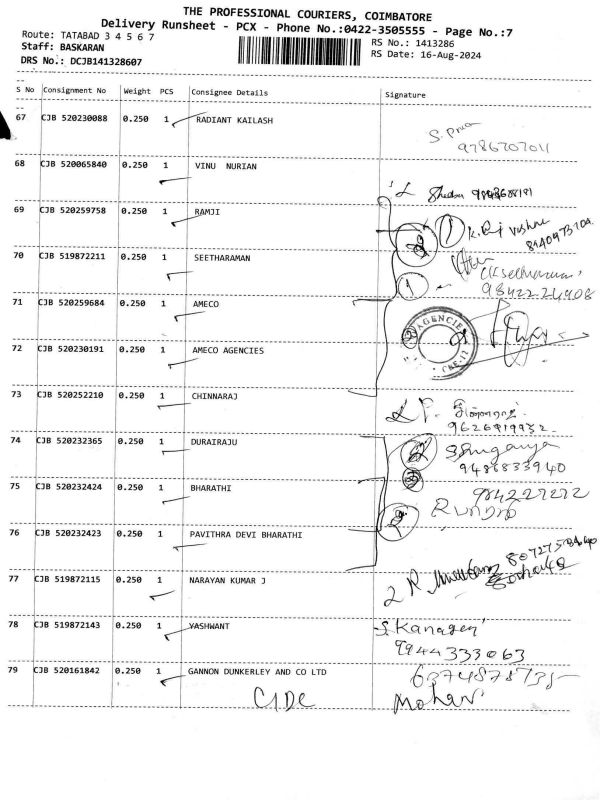 THE PROFESSIONAL COURIERS, COIMBATORE
Delivery Runsheet - PCX - Phone No.:0422-3505555 - Page No.:7
Route: TATABAD 3 4 5 6 7
RS No.: 1413286
Staff: BASKARAN
RS Date: 16-Aug-2024
DRS No.: DCJB141328607
S No Consignment No Weight PCS Consignee Details Signature
67 CJB 520230088 0.250 1 RADIANT KAILASH
9786707011
68 CJB 520065840 0.250 1 VINU NURIAN
69 CJB 520259758 0.250 1 RAMJI
70 CJB 519872211 0.250 1 SEETHARAMAN
9842224908
71 CJB 520259684 0.250 1 AMECO
AGENCIE
72 CJB 520230191 0.250 1 AMECO AGENCIES
73 CJB 520252210 0.250 1 CHINNARAJ
9626919932
74 CJB 520232365 0.250 1 DURAIRAJU
9486833940
75 CJB 520232424 0.250 1 BHARATHI
76 CJB 520232423 0.250 1 PAVITHRA DEVI BHARATHI
77 CJB 519872115 0.250 1 NARAYAN KUMAR J
78 CJB 519872143 0.250 1 YASHWANT
9944333063
79 CJB 520161842 0.250 1 GANNON DUNKERLEY AND CO LTD
Mohan